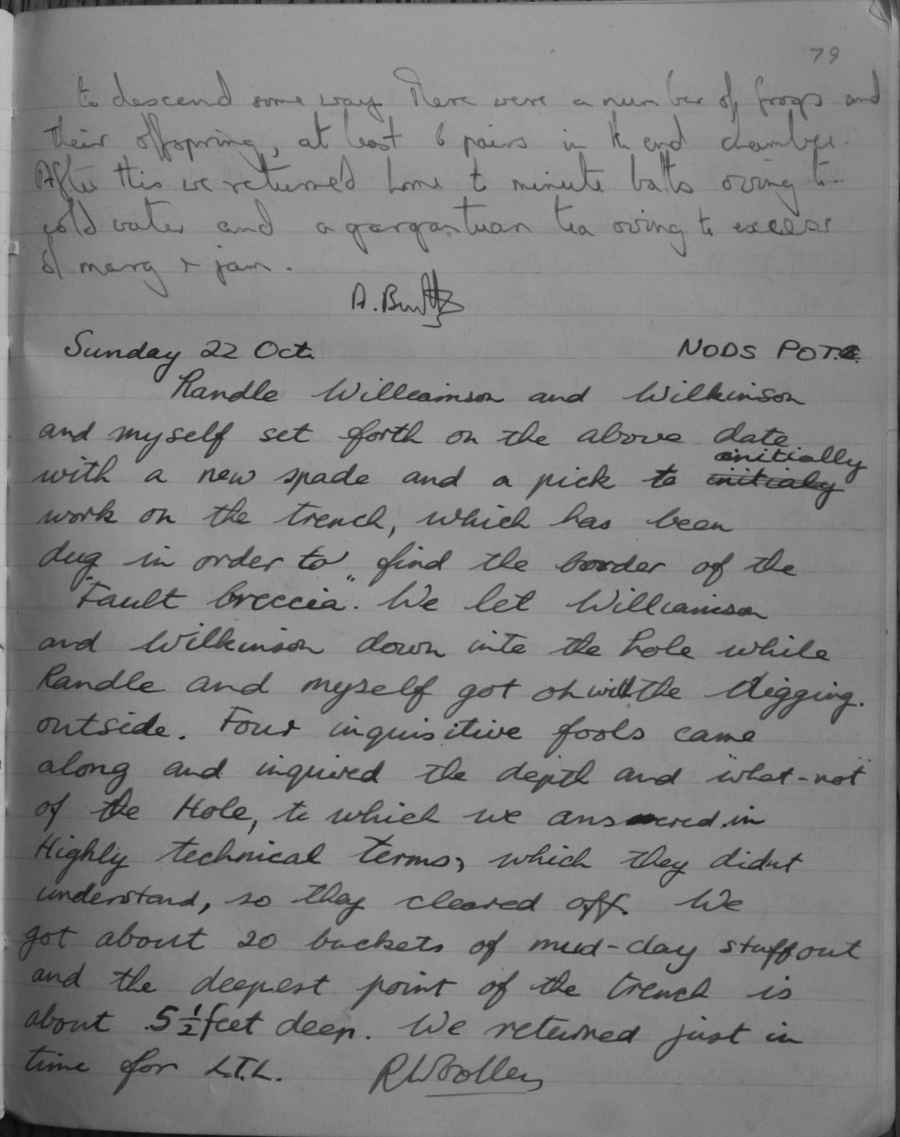 79
to descend some way. There were a number of frogs and
their offspring, at least 6 pairs in the end chamber.
After this we returned home to minute baths owing to
cold water and a gargantuan tea owing to excess
of marg & jam.
A.
Sunday 22 Oct. NODS POT.
Randle Williamson and Wilkinson
and myself set forth on the above date
initially
with a new spade and a pick to
work on the trench, which has been
dug in order to find the border of the
"Fault breccia". We let Williamson
and Wilkinson down into the hole while
Randle and myself got on with the digging.
outside. Four inquisitive fools came
along and inquired the depth and "what-not"
of the Hole, to which we answered in
Highly technical terms, which they didnt
understand, so they cleared off. We
got about 20 buckets of mud-clay stuff out
and the deepest point of the trench is
about 5 1/2 feet deep. We returned just in
time for L.T.L. RWoolley